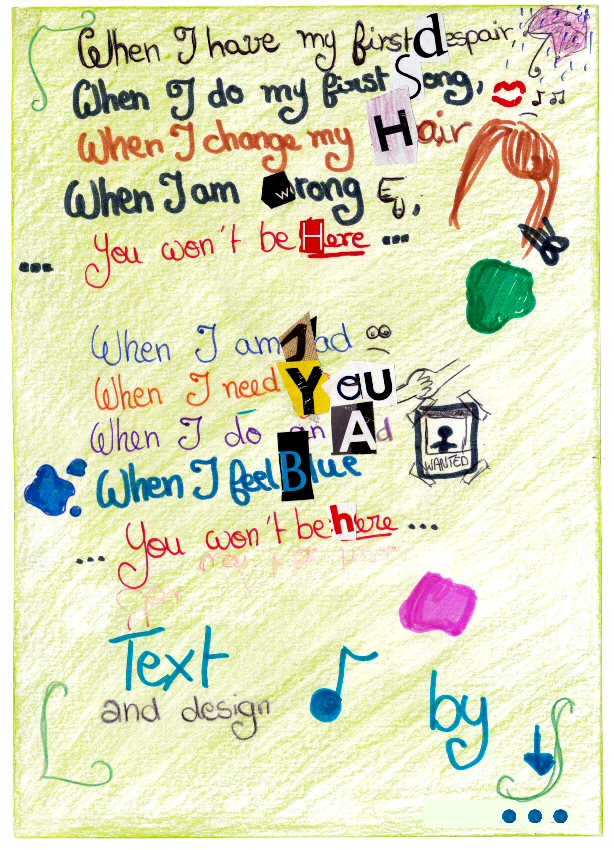 When I have my first despair,
When I do my first Song,
When I change my Hair
When I am wrong ,
... You won't be Here ...
When I am sad
When I need YOU
When I do an Ad
WANTED
When I feel Blue
... You won't be here ...
Text
and design
by